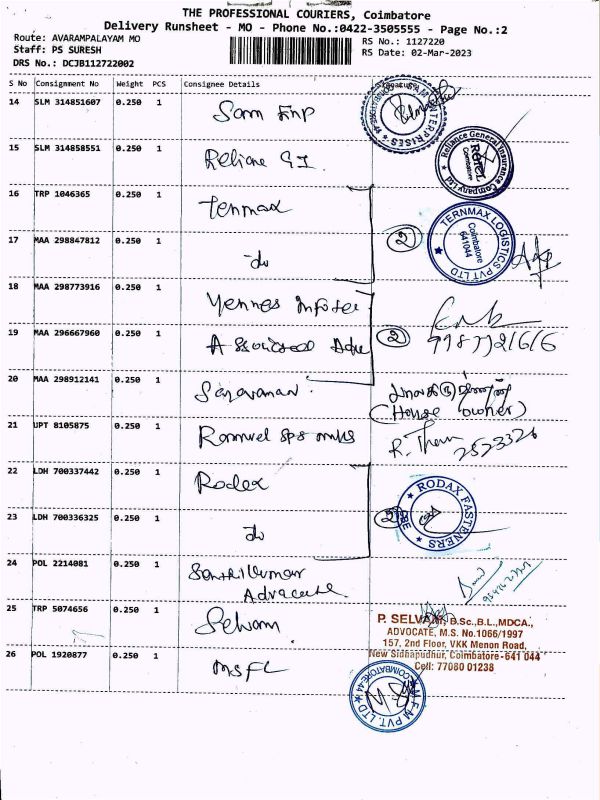 THE PROFESSIONAL COURIERS, Coimbatore
Delivery Runsheet - MO - Phone No.:0422-3505555 - Page No.:2
Route: AVARAMPALAYAM MO
Staff: PS SURESH
DRS No.: DCJB112722002
RS No.: 1127220
RS Date: 02-Mar-2023
S No Consignment No Weight PCS Consignee Details
14 SLM 314851607 0.250 1 Sam Enp
15 SLM 314858551 0.250 1 Reliane GI.
Reliance General Insurance Company Ltd
Coimbatore
16 TRP 1046365 0.250 1 Tenmax
17 MAA 298847812 0.250 1 do
2
TERNMAX LOGISTICS PVT LTD
Coimbatore
641044
18 MAA 298773916 0.250 1 Yennes Infotec
19 MAA 296667960 0.250 1
2
20 MAA 298912141 0.250 1 Saravanan
(House owner)
21 UPT 8105875 0.250 1
22 LDH 700337442 0.250 1 Rodex
23 LDH 700336325 0.250 1 do
2
RODAX FASTENERS
24 POL 2214081 0.250 1 Senthilkumar
Advacate
25 TRP 5074656 0.250 1 Selvam
P. SELVAM, B.Sc.,B.L.,MDCA.,
ADVOCATE, M.S. No.1066/1997
157, 2nd Floor, VKK Menon Road,
New Sidhapudhur, Coimbatore-641 044
Cell: 77080 01238
26 POL 1920877 0.250 1 MSFL
COIMBATORE-44